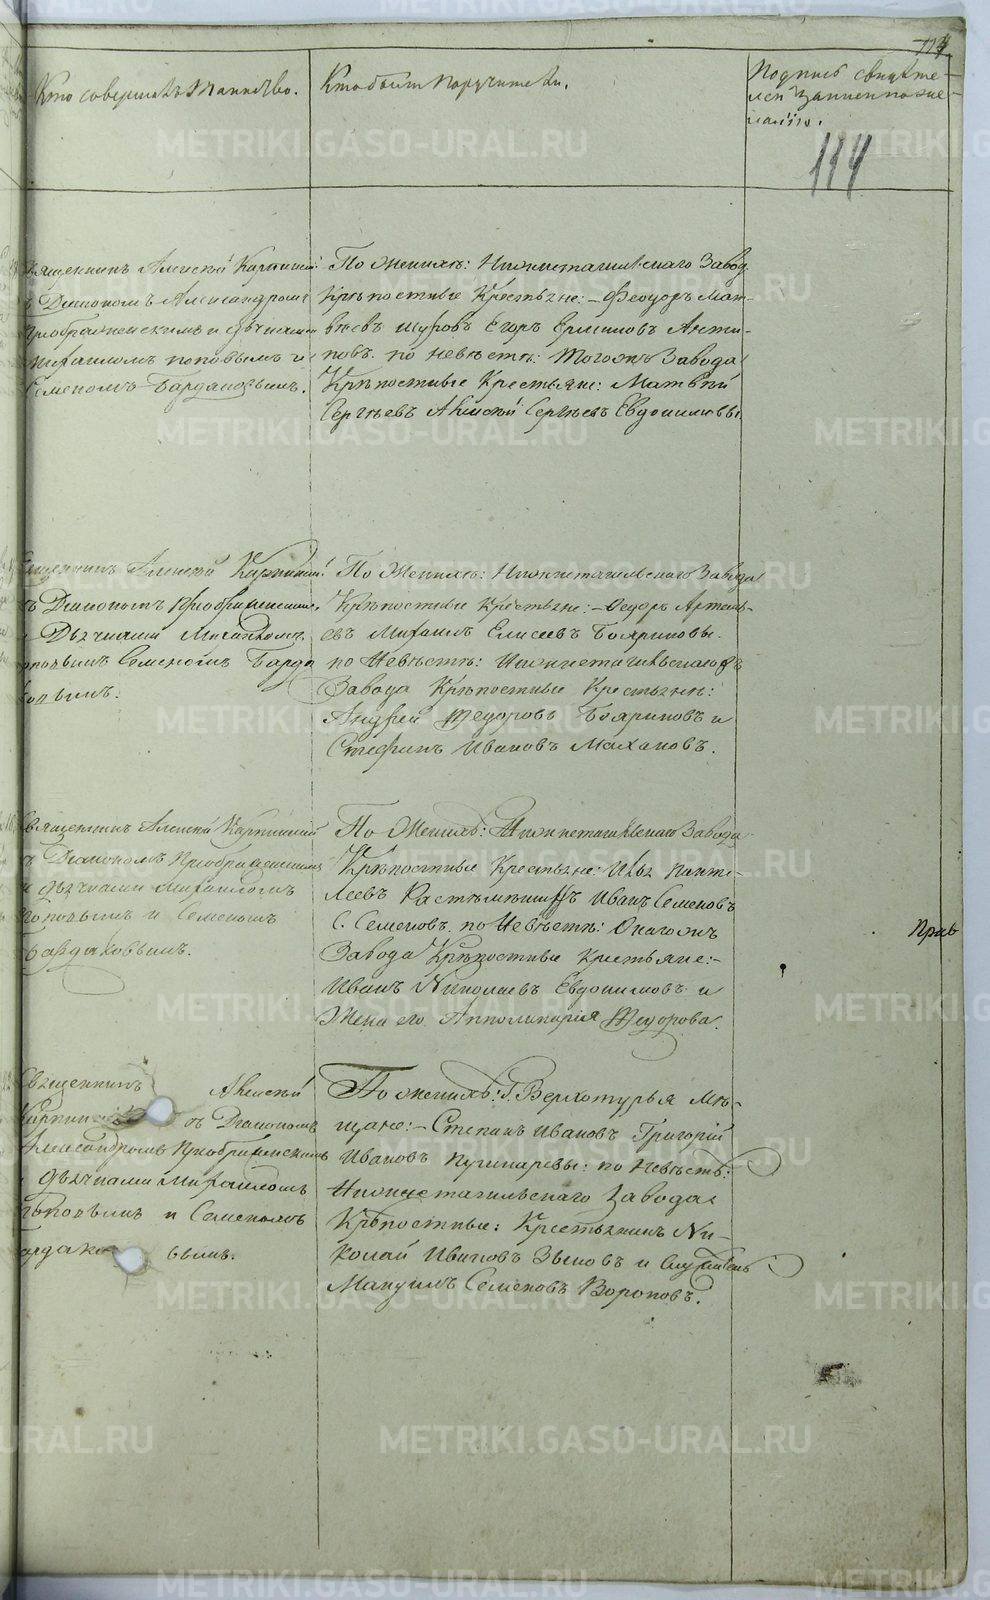 114
Кто совершалъ Таинство.
Кто были поручители.
Подпись свидѣте-
лей записи по же-
ланію.
114
Священникъ Алексѣй Карпинскій
съ Діакономъ Александромъ
Преображенскимъ и дьячками
Михаиломъ Поповымъ и
Семеномъ Бардаковымъ.
По Женихѣ: Нижнетагильскаго Завод.
Крѣпостные Крестьяне: – Феодоръ Мат-
вѣевъ Егоръ Ермиловъ Анти-
повъ. по невѣстѣ: Тогожъ Завода
Крѣпостные Крестьяне: Матвѣй
Сергѣевъ Алексѣй Сергѣевъ Евдокимовы
Священникъ Алексѣй Карпинскій
съ Діакономъ Преображенскимъ
и Дьячками Михаиломъ
Поповымъ Семеномъ Барда
ковымъ.
По Женихѣ: Нижнетагильскаго Завода
Крѣпостные Крестьяне: – Федоръ Артемь-
евъ Михаилъ Елисеевъ Бояриновы.
по Невѣстѣ: Нижнетагильскаго
Завода Крѣпостные Крестьяне:
Андрей Федоровъ Бояриновъ и
Стефанъ Ивановъ Махановъ.
Священникъ Алексѣй Карпинскій
съ Діакономъ Преображенскимъ
и дьячками Михаиломъ
Поповымъ и Семеномъ
Бардаковымъ.
По Женихѣ: Нижнетагильскаго Завода
Крѣпостные Крестьяне: Иванъ Семеновъ
С. Семеновъ. по Невѣстѣ: Онагожъ
Завода Крѣпостные Крестьяне: –
Иванъ Николаевъ Евдокимовъ и
Жена его Апполинарія Федорова.
Прав
Священникъ Алексѣй
Карпинскій съ Діакономъ
Александромъ Преображенскимъ
и дьячками Михаиломъ
Поповымъ и Семеномъ
Бардаковымъ.
По женихѣ: г. Верхотурья Мѣ-
щане: – Степанъ Ивановъ Григорій
Ивановъ Пушкаревы: по Невѣстѣ:
Нижнетагильскаго Завода
Крѣпостные: Крестьянинъ Ни-
колай Ивановъ Зыковъ и Служитель
Семеновъ Вороновъ.
METRIKI.GASO-URAL.RU